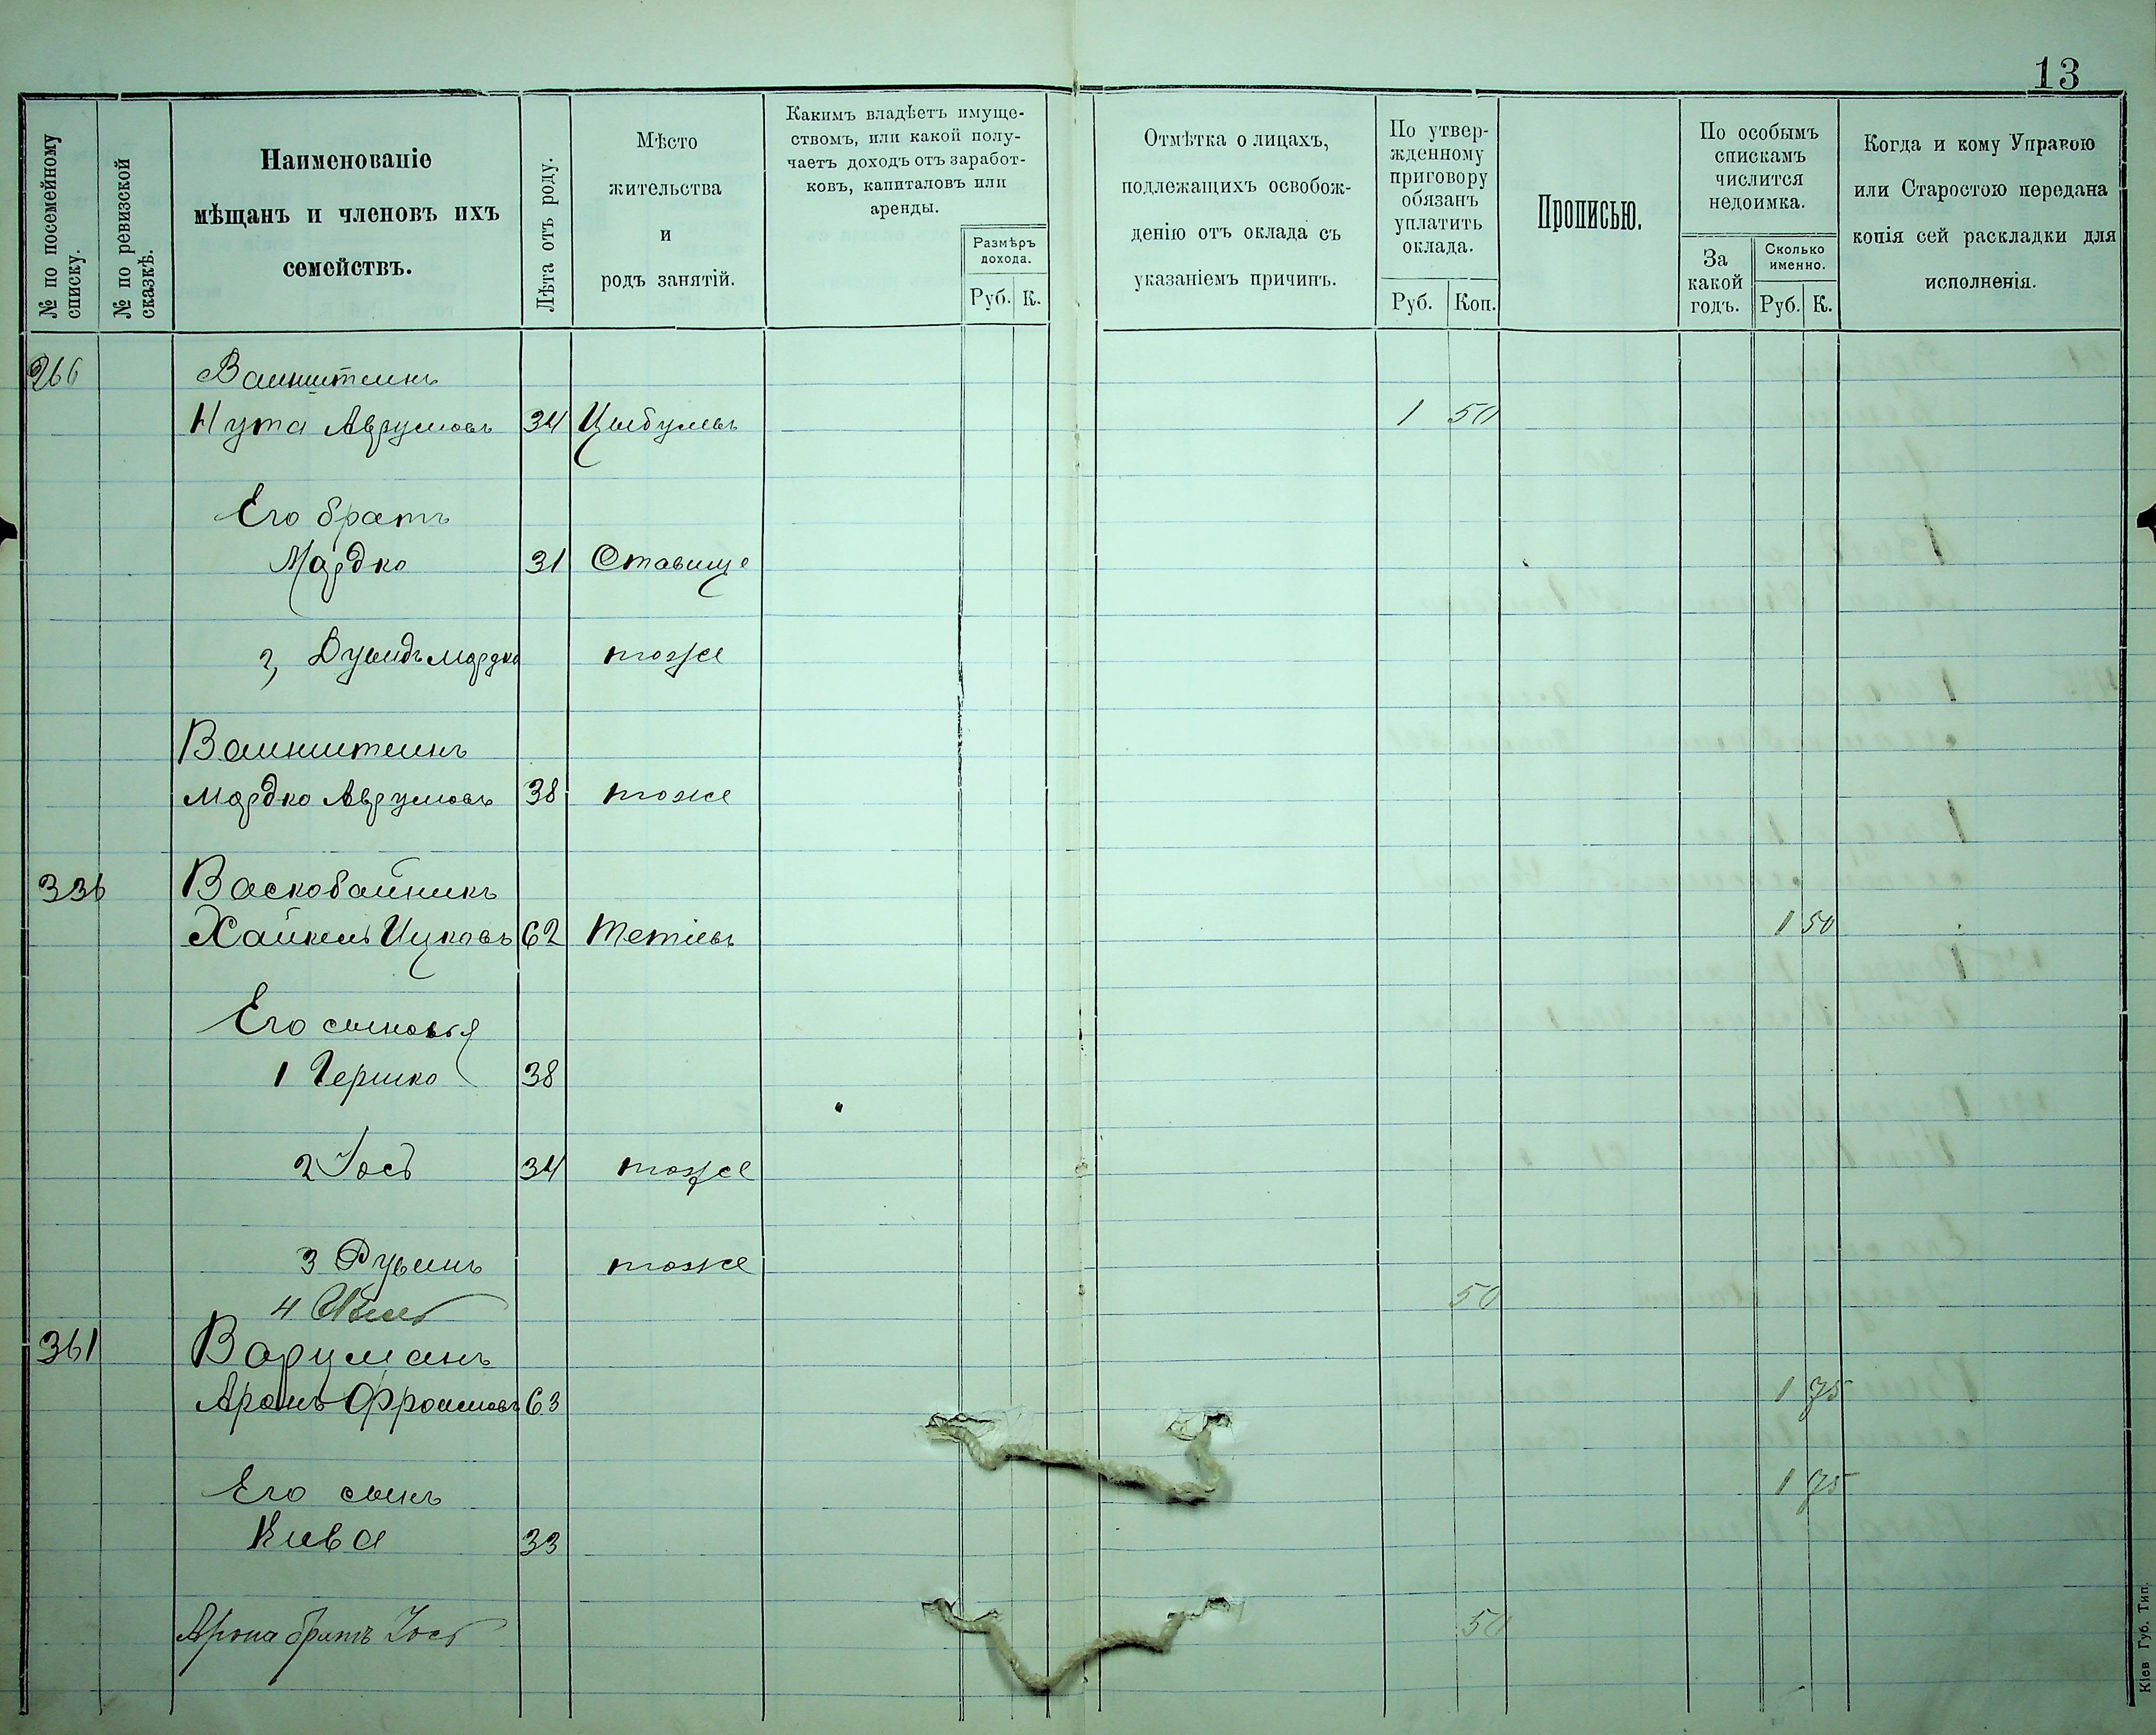 13
№ по посемейному списку.
№ по ревизской сказкѣ.
Наименованіе
мѣщанъ и членовъ ихъ
семействъ.
Лѣта отъ роду.
Мѣсто
жительства
и
родъ занятій.
Какимъ владѣетъ имуще-
ствомъ, или какой полу-
чаетъ доходъ отъ заработ-
ковъ, капиталовъ или
аренды.
Размѣръ
дохода.
Руб. К.
Отмѣтка о лицахъ,
подлежащихъ освобож-
денію отъ оклада съ
указаніемъ причинъ.
По утвер-
жденному
приговору
обязанъ
уплатить
оклада.
Руб. Коп.
Прописью.
По особымъ
спискамъ
числится
недоимка.
За
какой
годъ.
Сколько
именно.
Руб. К.
Когда и кому Управою
или Старостою передана
копія сей раскладки для
исполненія.
266 Ваинштеинъ
Нута Аврумовъ 34 Цыбулевъ 1 50
Его братъ
Мордко 31 Ставище
2, Мордко тоже
Ваинштеинъ
Мордко Аврумовъ 38 тоже
336 Васкобайникъ
Хайкель Ицковъ 62 Тетіевъ 1 50
Его сыновья
1 Гершко 38
2 Іось 34 тоже
3 Рувинъ тоже
4 50
361
Аронъ Фроимовъ 63 1 75
Его сынъ 1 75
Кива 33
Арона братъ Іось 50
Кіев Губ. Тип.